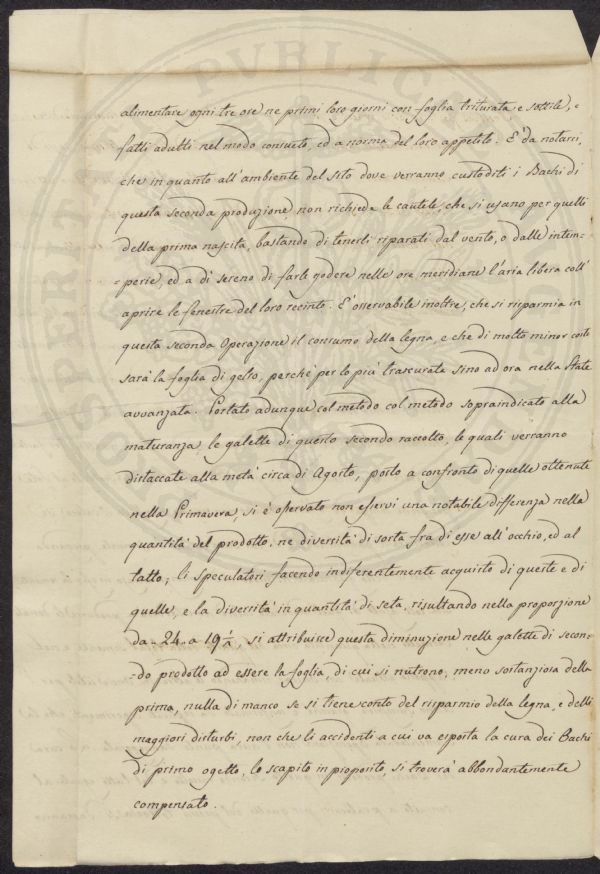 alimentare ogni tre ore ne primi loro giorni con foglia triturata e sottile, e
fatti adulti nel modo consueto, ed a norma del loro appetito. E' da notarsi,
che in quanto all'ambiente del sito dove verranno custoditi i Bachi di
questa seconda produzione, non richiede le cautele, che si usano per quelli
della prima nascita, bastando di tenerli riparati dal vento, o dalle intem=
=perie, ed a dì sereno di farle godere nelle ore meridiane l'aria libera coll'
aprire le fenestre del loro recinto. E' osservabile inoltre, che si risparmia in
questa seconda Operazione il consumo della legna, e che di molto minor costo
sarà la foglia di gelso, perchè per lo più trascurata sino ad ora nella State
avvanzata. Portato adunque col metodo col metodo sopraindicato alla
maturanza le galette di questo secondo raccolto, le quali verranno
distaccate alla metà circa di Agosto, posto a confronto di quelle ottenute
nella Primavera, si è osservato non esservi una notabile differenza nella
quantità del prodotto, ne diversità di sorta fra di esse all'occhio, ed al
tatto; li speculatori facendo indiferentemente acquisto di queste e di
quelle, e la diversità in quantità di seta, risultando nella proporzione
da 24 a 19 ½, si attribuisce questa diminuzione nelle galette di secon=
=do prodotto ad essere la foglia, di cui si nutrono, meno sostanziosa della
prima, nulla di manco se si tiene conto del risparmio della legna, e delli
maggiori disturbi, non che li accidenti a cui va esposta la cura dei Bachi
di primo ogetto, lo scapito in proposito, si troverà abbondantemente
compensato.
PROSPERITATI PUBLICAE